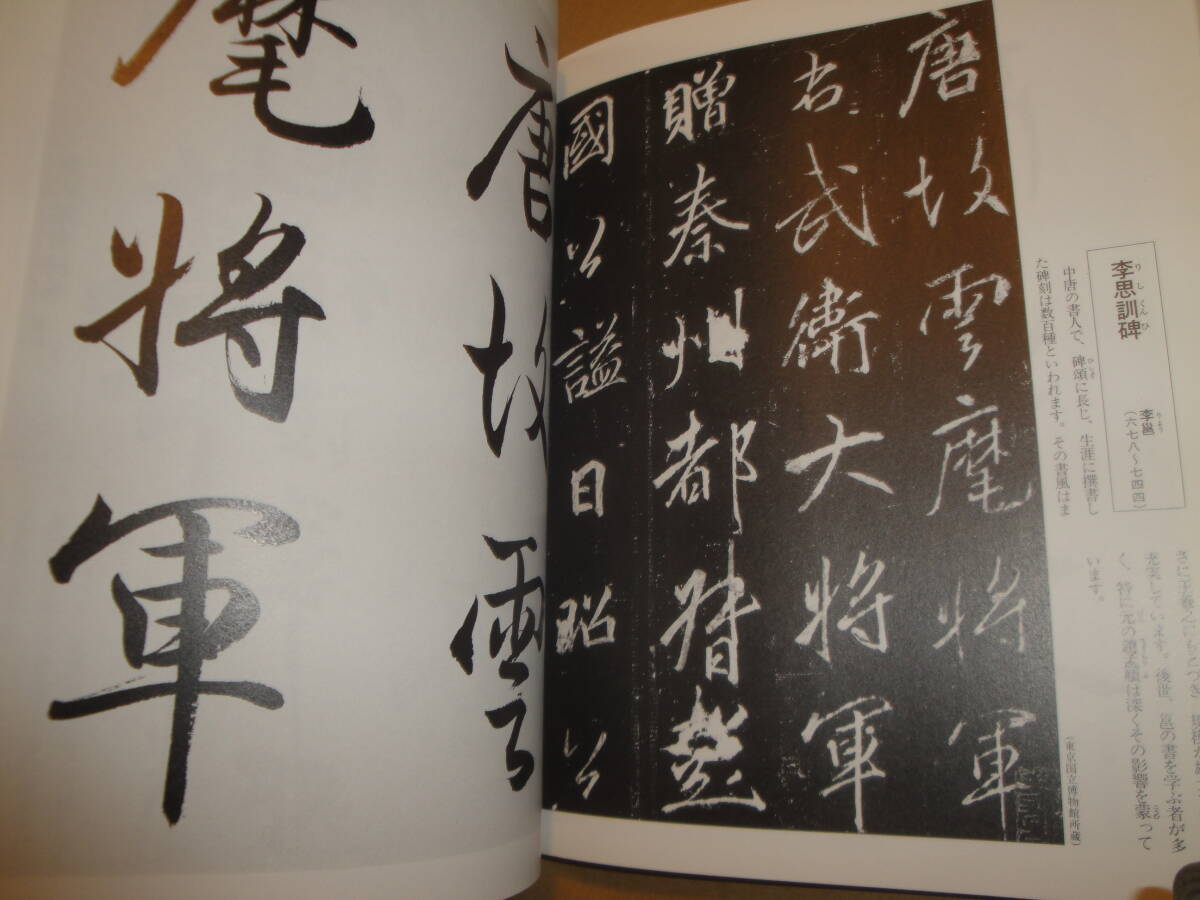 李思訓碑
りしくんひ
李邕
りよう
(六七八〜七四四)
中唐の書人で、碑頌に長じ、生涯に撰書し
ひしょう
た碑刻は数百種といわれます。その書風はま
充実しています。後世、邕の書を学ぶ者が多
く、特に元の趙孟頫は深くその影響を蒙って
こうむ
います。
(東京国立博物館所蔵)
唐故雲麾将軍
右武衛大将軍
贈秦州都督彭
國公謚曰昭公
唐故雲
麾將軍